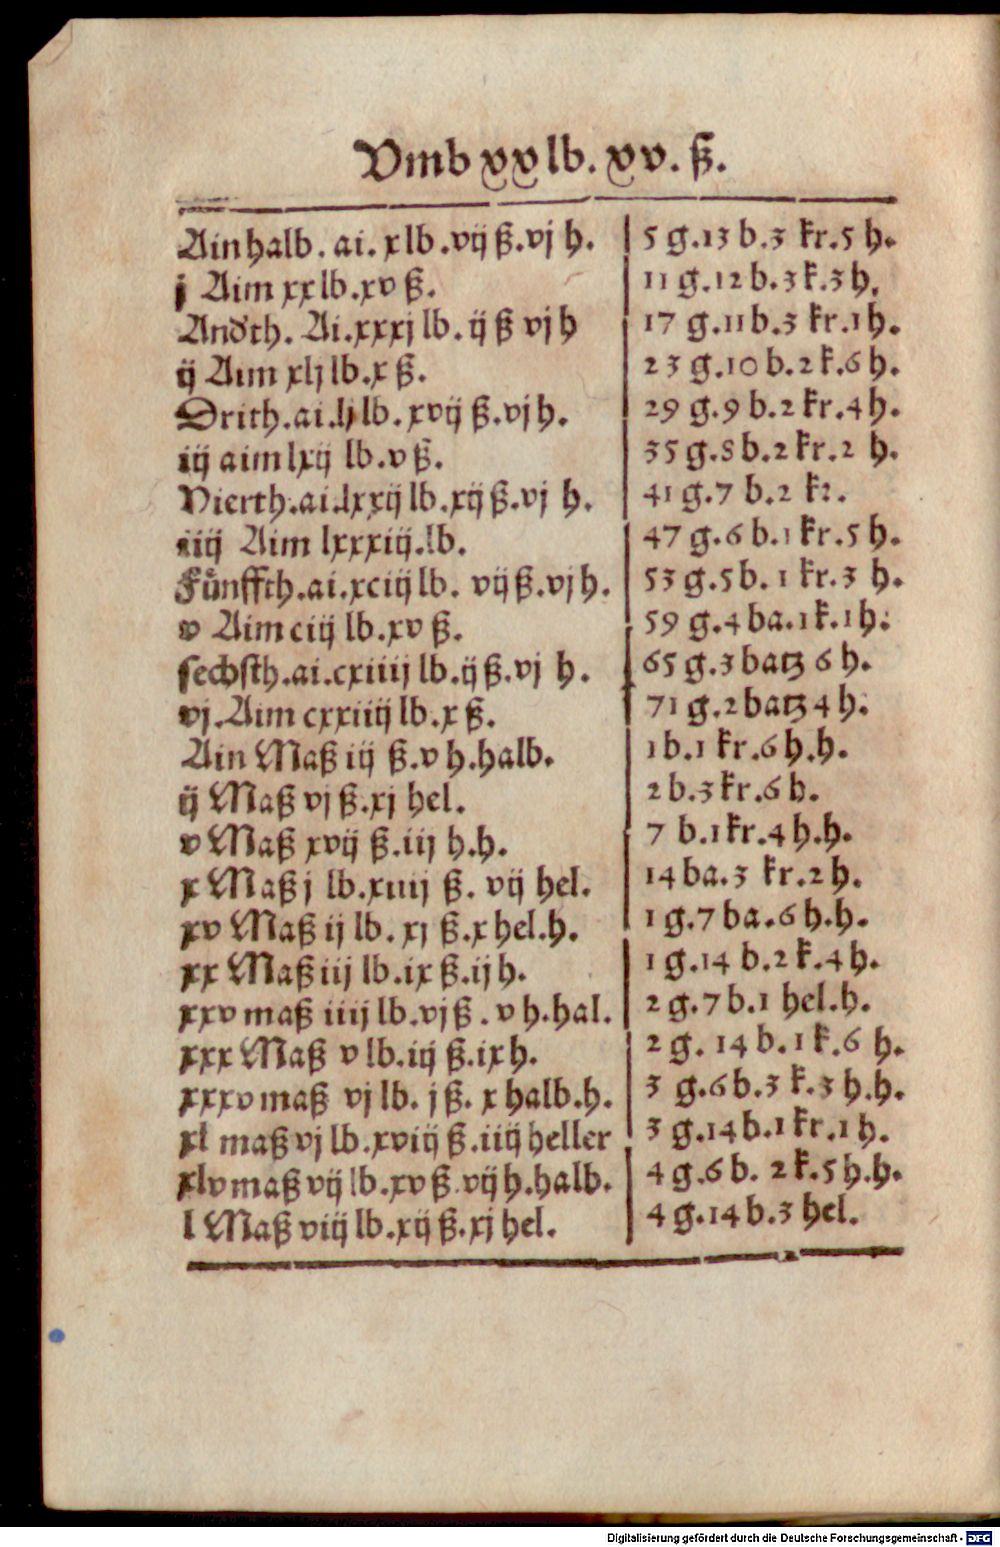 Vmb xx lb. xv. ß.
Ainhalb. ai. x lb. vij ß. vj h. | 5 g. 13 b. 3 kr. 5 h.
j Aim xx lb. xv ß. | 11 g. 12 b. 3 k. 3 h.
Andth. Ai. xxxj lb. ij ß vj h | 17 g. 11 b. 3 kr. 1 h.
ij Aim xlj lb. x ß. | 23 g. 10 b. 2 k. 6 h.
Drith. ai. lj lb. xvij ß. vj h. | 29 g. 9 b. 2 kr. 4 h.
iij aim lxij lb. v ß. | 35 g. 8 b. 2 kr. 2 h.
Vierth. ai. lxxij lb. xij ß. vj h. | 41 g. 7 b. 2 kr.
iiij Aim lxxxiij. lb. | 47 g. 6 b. 1 kr. 5 h.
Fünffth. ai. xciij lb. vij ß. vj h. | 53 g. 5 b. 1 kr. 3 h.
v Aim ciij lb. xv ß. | 59 g. 4 ba. 1 k. 1 h.
sechsth. ai. cxiiij lb. ij ß. vj h. | 65 g. 3 batz 6 h.
vj. Aim cxxiiij lb. x ß. | 71 g. 2 batz 4 h.
Ain Maß iij ß. v h. halb. | 1 b. 1 kr. 6 h. h.
ij Maß vj ß. xj hel. | 2 b. 3 kr. 6 h.
v Maß xvij ß. iij h. h. | 7 b. 1 kr. 4 h. h.
x Maß j lb. xiiij ß. vij hel. | 14 ba. 3 kr. 2 h.
xv Maß ij lb. xj ß. x hel. h. | 1 g. 7 ba. 6 h. h.
xx Maß iij lb. ix ß. ij h. | 1 g. 14 b. 2 k. 4 h.
xxv maß iiij lb. vj ß. v h. hal. | 2 g. 7 b. 1 hel. h.
xxx Maß v lb. iij ß. ix h. | 2 g. 14 b. 1 k. 6 h.
xxxv maß vj lb. j ß. x halb. h. | 3 g. 6 b. 3 k. 3 h. h.
xl maß vj lb. xviij ß. iiij heller | 3 g. 14 b. 1 kr. 1 h.
xlv maß vij lb. xv ß. vij h. halb. | 4 g. 6 b. 2 k. 5 h. h.
l Maß viij lb. xij ß. xj hel. | 4 g. 14 b. 3 hel.
Digitalisierung gefördert durch die Deutsche Forschungsgemeinschaft - DFG